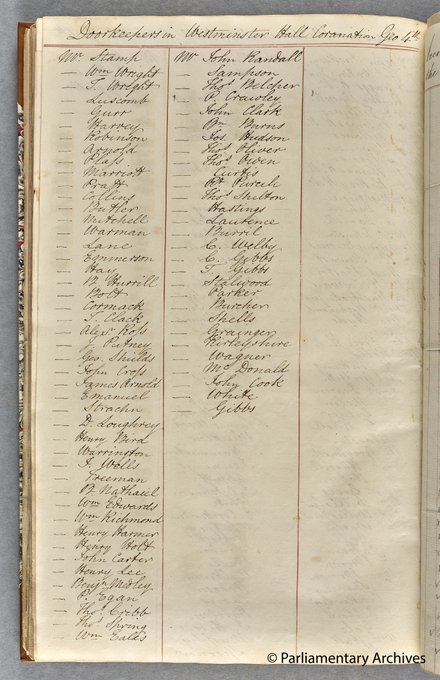 Doorkeepers in Westminster Hall Coronation Geo 4th
Mr Stamp
— Wm Wright
— T. Wright
— Luscomb
— Gurr
— Harvey
— Robinson
— Arnold
— Plass
— Marriott
— Pratt
— Collins
— Butler
— Mitchell
— Warman
— Lane
— Emmerson
— Hay
— B. Hurrill
— Bolt
— Cormack
— T. Clack
— Alexr Ross
— J. Putney
— Geo. Shields
— John Cross
— James Arnold
— Emanuel
— Strachn
— D. Loughrey
— Henry Bird
— Warrington
— J. Wells
— Freeman
— B. Nathaiel
— Wm Edwards
— Wm Richmond
— Henry Harmer
— Henry Holt
— John Carter
— Henry Lee
— Benjn Medley
— P. Egan
— Thos. Cribb
— Thos Spring
— Wm Eales
Mr John Randall
— Sampson
— Thos Belcher
— P. Crawley
— John Clark
— Bn Burns
— Jos. Hudson
— Thos Oliver
— Thos Owen
— Curtis
— Rt Purcell
— Thos Shelton
— Hastings
— Lautence
— Burril
— C. Welby
— C. Gibbs
— T. Gibbs
— Stalwood
— Parker
— Burcher
— Shells
— Grainger
— Kirleyshire
— Wagner
— Mc Donald
— John Cook
— White
— Gibbs
© Parliamentary Archives